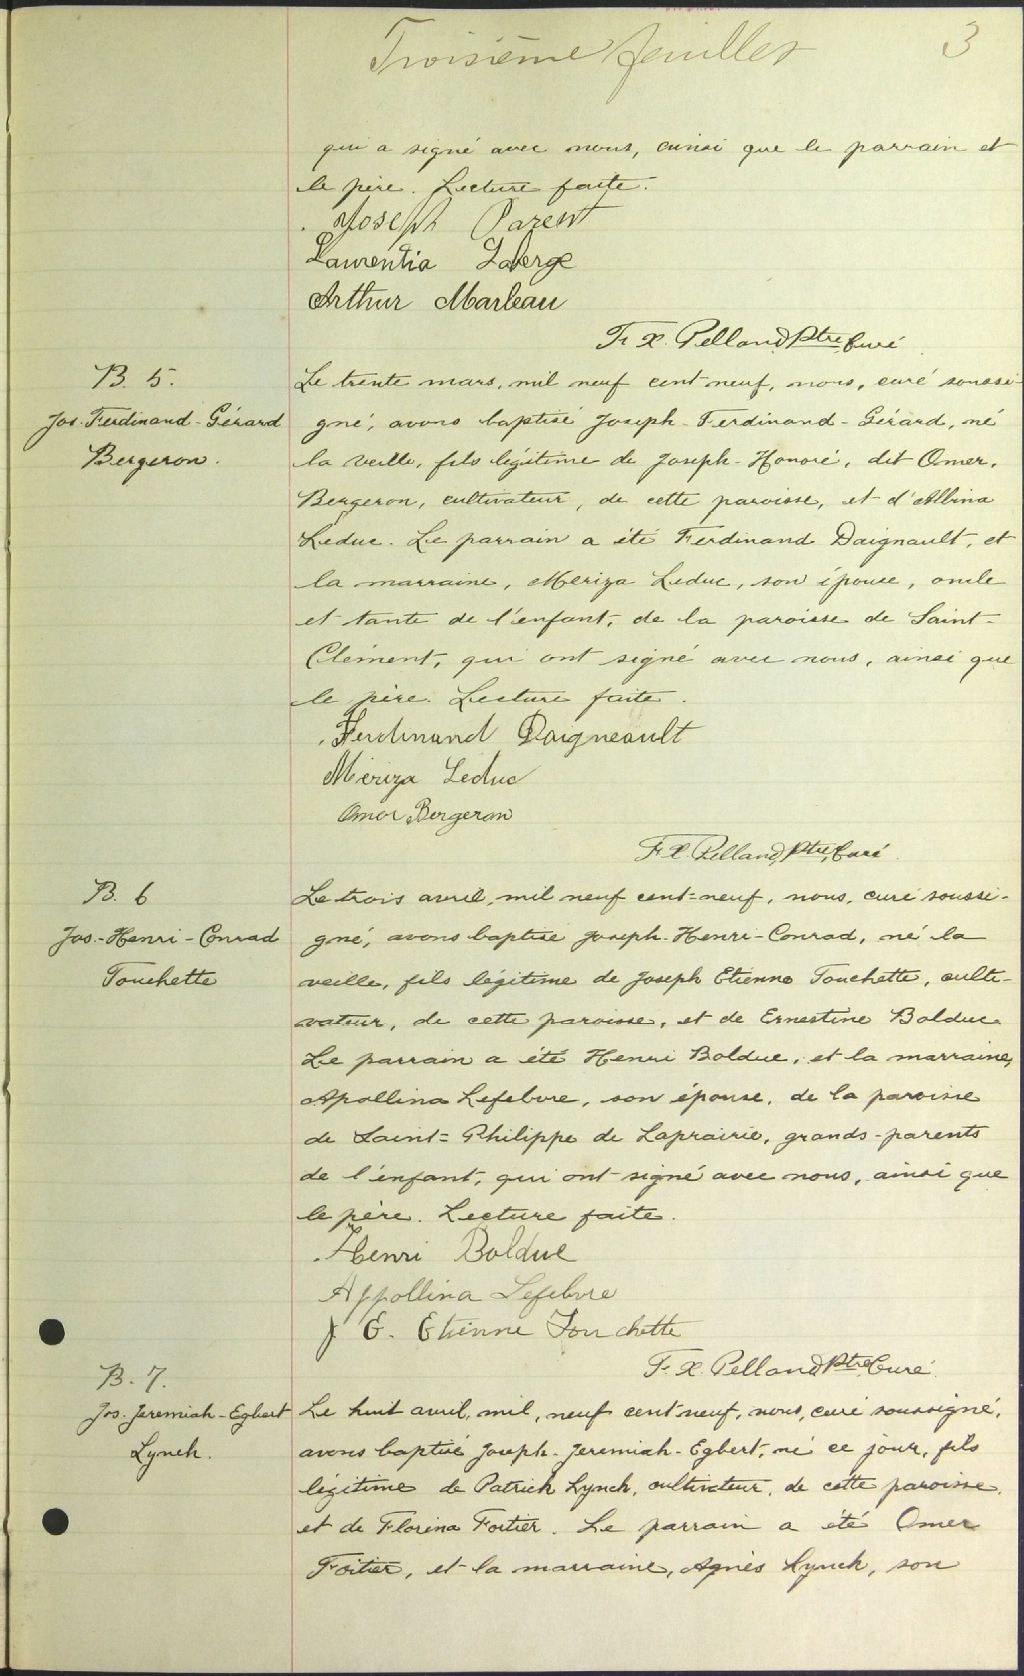 Troisième feuillet 3
qui a signé avec nous, ainsi que le parrain et
le père. Lecture faite.
Joseph Parent
Laurentia Laberge
Arthur Marleau
F. X. Pelland Ptre, Curé
B. 5.
Jos. Ferdinand-Gérard
Bergeron.
Le trente mars, mil neuf cent neuf, nous, curé soussi-
gné, avons baptisé Joseph-Ferdinand-Gérard, né
la veille, fils légitime de Joseph-Honoré, dit Omer,
Bergeron, cultivateur, de cette paroisse, et d'Albina
Leduc. Le parrain a été Ferdinand Daignault, et
la marraine, Meriza Leduc, son épouse, oncle
et tante de l'enfant, de la paroisse de Saint-
Clément, qui ont signé avec nous, ainsi que
le père. Lecture faite.
Ferdinand Daigneault
Mériza Leduc
Omer Bergeron
F. X. Pelland, Ptre, Curé.
B. 6
Jos.-Henri-Conrad
Touchette
Le trois avril, mil neuf cent-neuf, nous, curé soussi-
gné, avons baptisé Joseph-Henri-Conrad, né la
veille, fils légitime de Joseph Etienne Touchette, culti-
vateur, de cette paroisse, et de Ernestine Bolduc.
Le parrain a été Henri Bolduc, et la marraine,
Apollina Lefebvre, son épouse, de la paroisse
de Saint-Philippe de Laprairie, grands-parents
de l'enfant, qui ont signé avec nous, ainsi que
le père. Lecture faite.
Henri Bolduc
Appollina Lefebvre
J E. Etienne Touchette
F. X. Pelland Ptre Curé.
B. 7.
Jos. Jeremiah-Egbert
Lynch.
Le huit avril, mil, neuf cent neuf, nous, curé soussigné,
avons baptisé Joseph-Jeremiah-Egbert, né ce jour, fils
légitime de Patrick Lynch, cultivateur, de cette paroisse,
et de Florina Fortier. Le parrain a été Omer
Fortier, et la marraine, Agnès Lynch, son